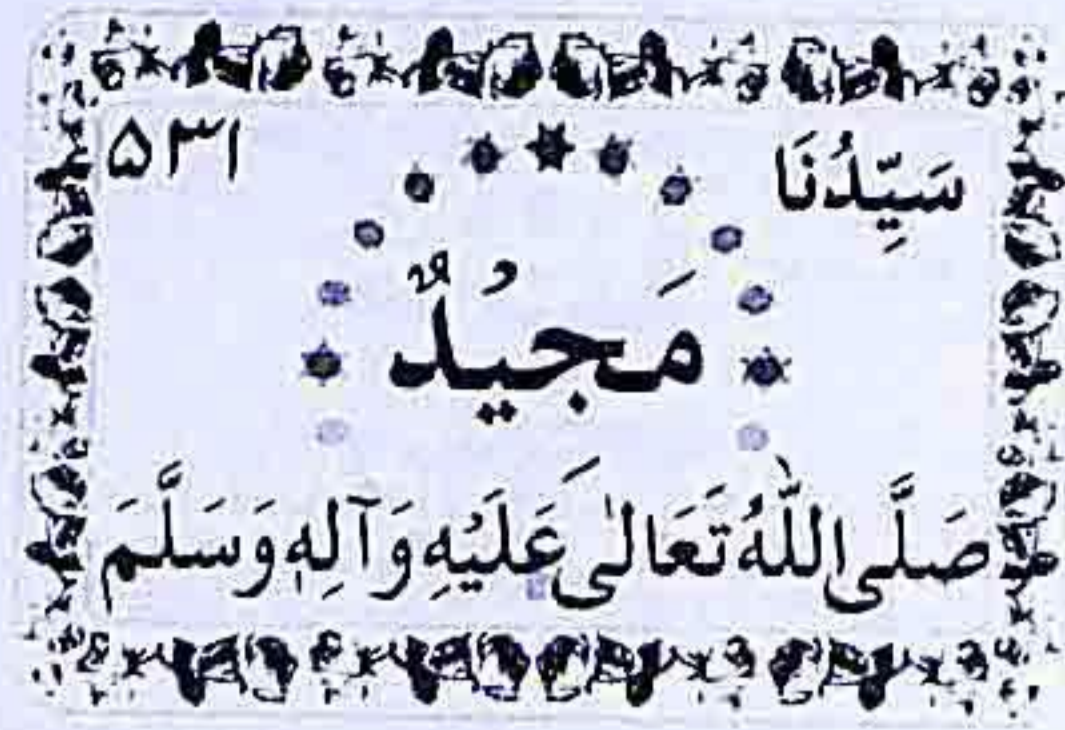 سَيِّدُنَا ۵۳۱
مَجِيْدٌ
صَلَّى اللّٰهُ تَعَالٰى عَلَيْهِ وَآلِهٖ وَسَلَّمَ